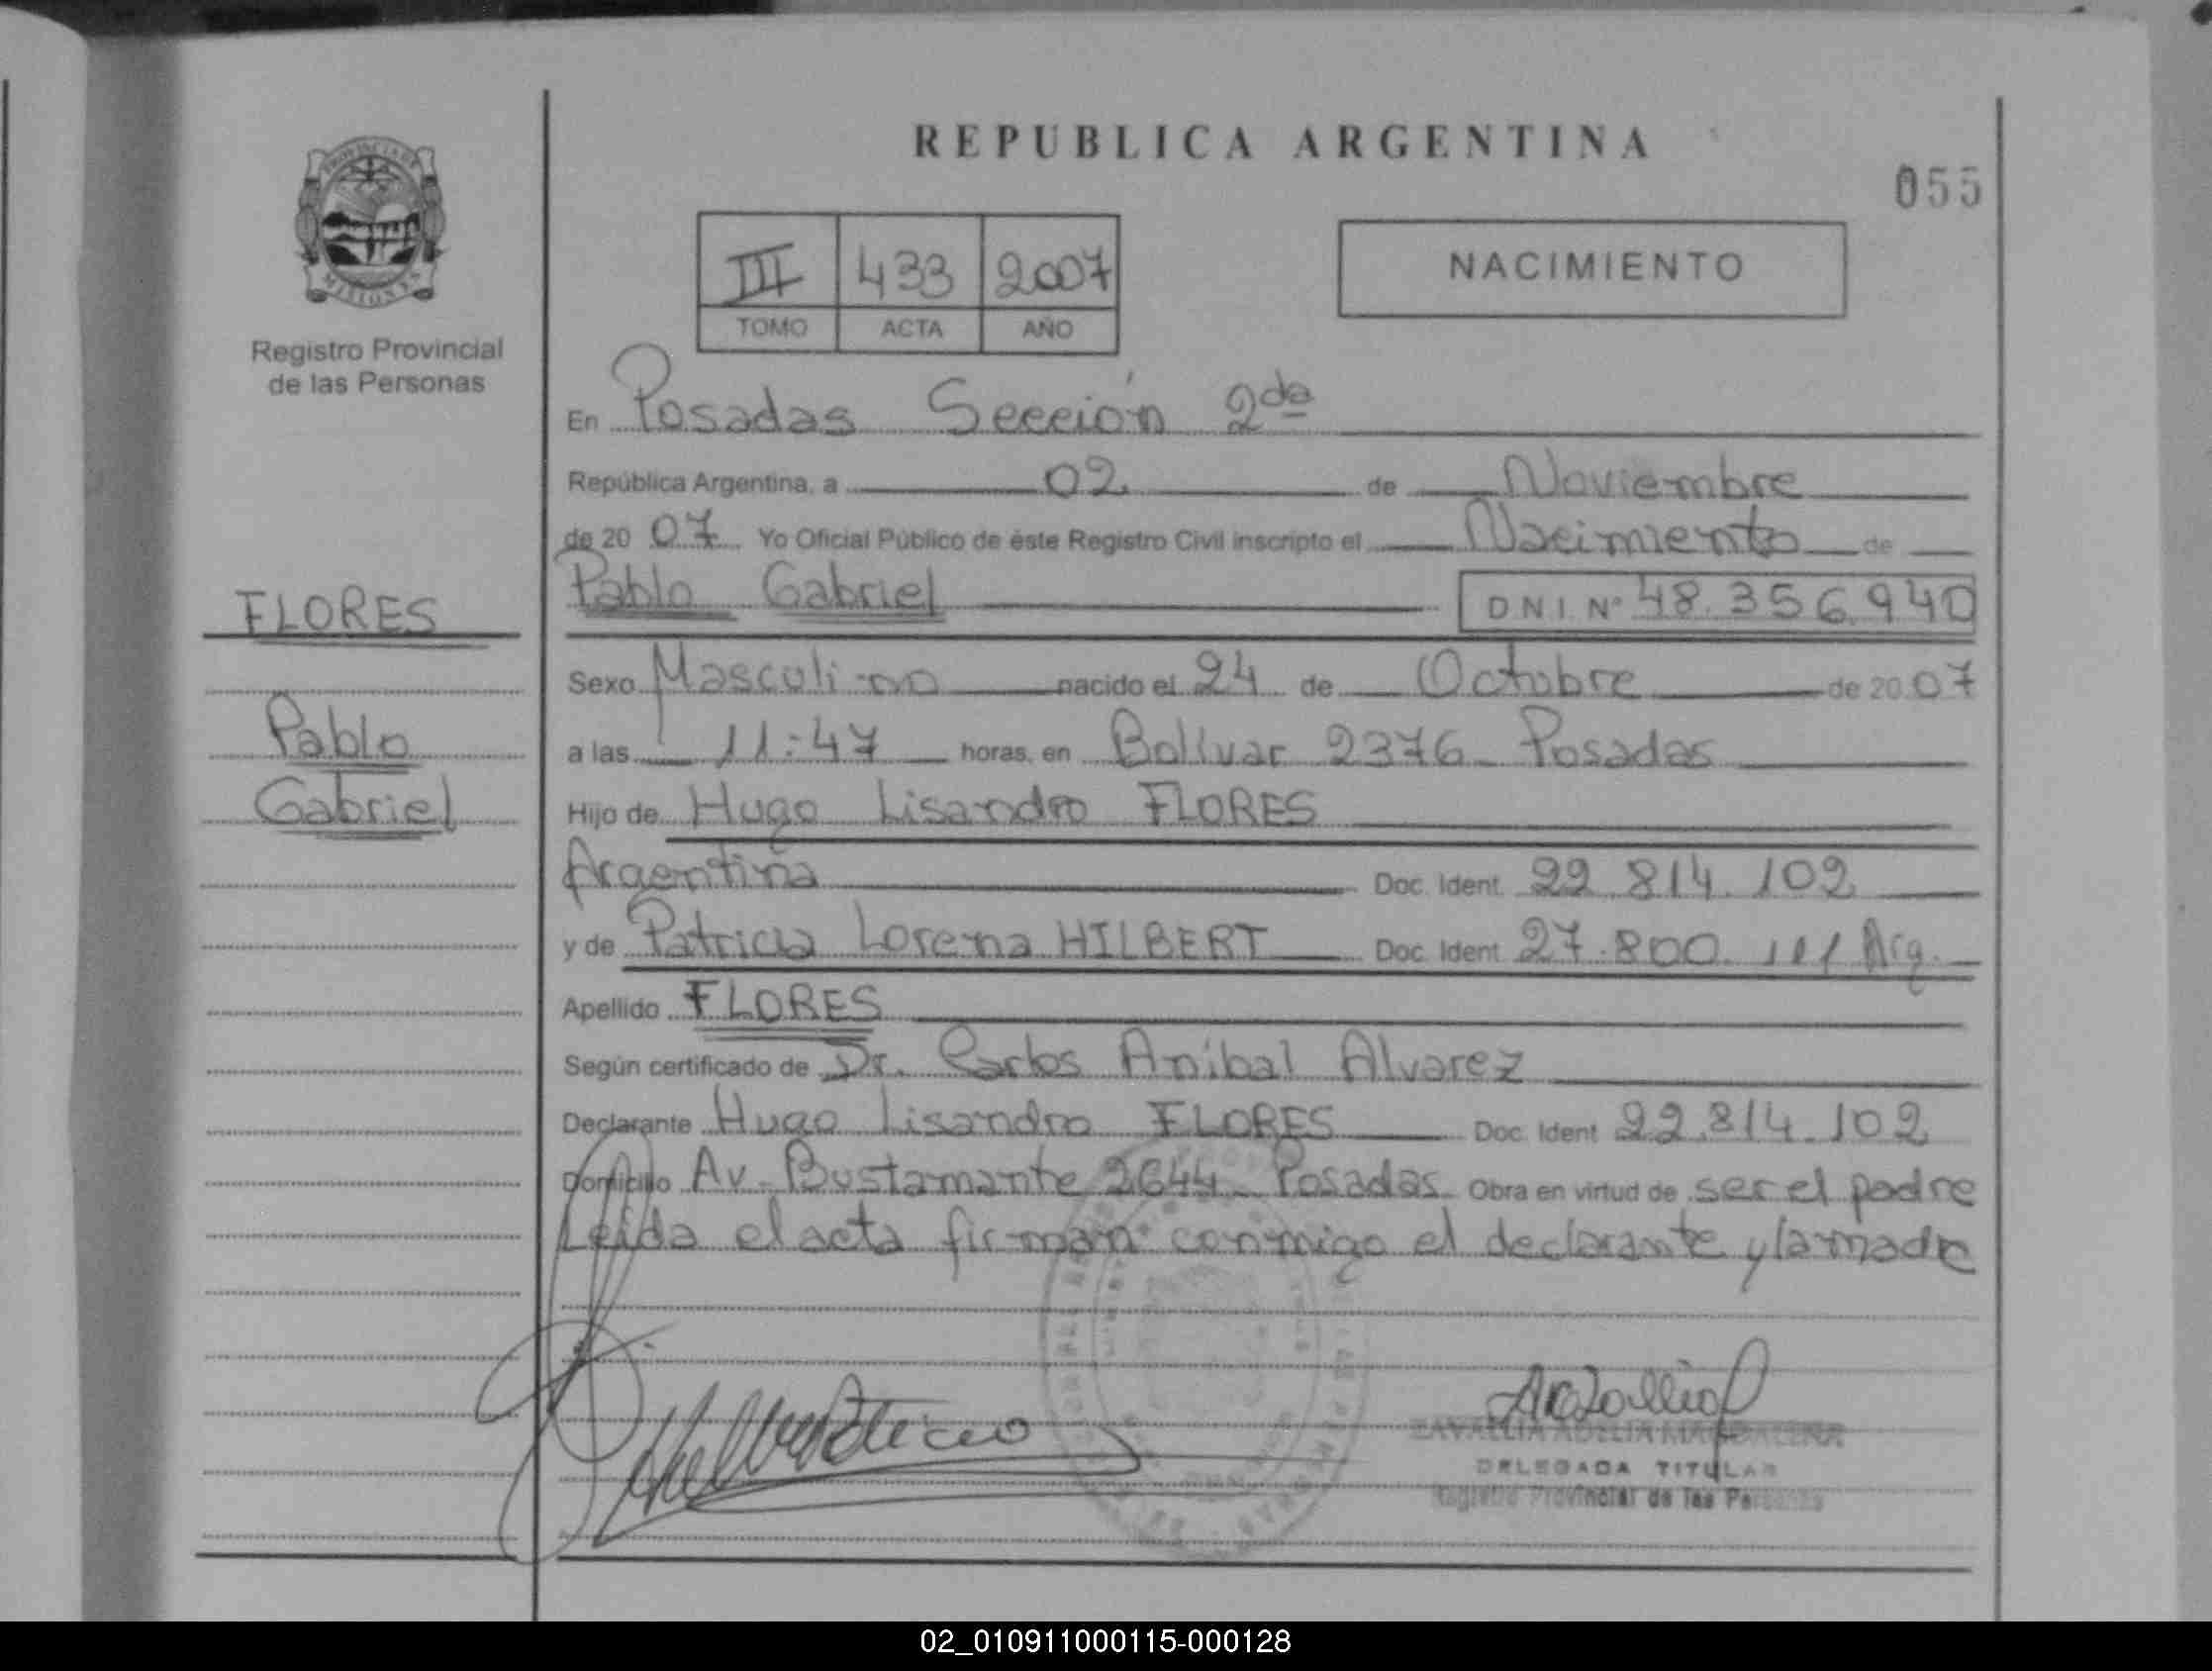 REPUBLICA ARGENTINA
055
III 433 2007
TOMO ACTA AÑO
NACIMIENTO
PROVINCIA DE
MISIONES
Registro Provincial
de las Personas
FLORES
Pablo
Gabriel
En Posadas Sección 2da
República Argentina, a 02 de Noviembre
de 20 07 Yo Oficial Público de éste Registro Civil inscripto el Nacimiento de
Pablo Gabriel DNI Nº 48.356.940
Sexo Masculino nacido el 24 de Octubre de 20 07
a las 11:47 horas, en Bolívar 2376 - Posadas
Hijo de Hugo Lisandro FLORES
Argentina Doc. Ident. 22.814.102
y de Patricia Lorena HILBERT Doc. Ident. 27.800.111 Arg.
Apellido FLORES
Según certificado de Dr. Carlos Aníbal Alvarez
Declarante Hugo Lisandro FLORES Doc. Ident 22.814.102
Domicilio Av. Bustamante 2644 - Posadas Obra en virtud de ser el padre
Leída el acta firman conmigo el declarante y la madre
ZAVALLIA ADELIA MAGDALENA
DELEGADA TITULAR
Registro Provincial de las Personas
02_010911000115-000128